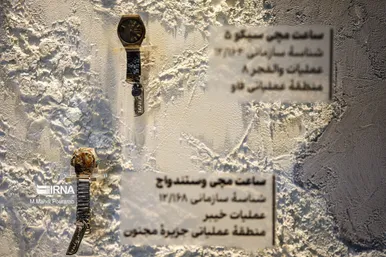 ساعت مچی سیکو ۵
شناسهٔ سازمانی ۱۲/۱۶۳
عملیات والفجر ۸
منطقهٔ عملیاتی فاو
IRNA
ساعت مچی وستندواچ
شناسهٔ سازمانی ۱۲/۱۶۸
عملیات خیبر
منطقهٔ عملیاتی جزیرهٔ مجنون